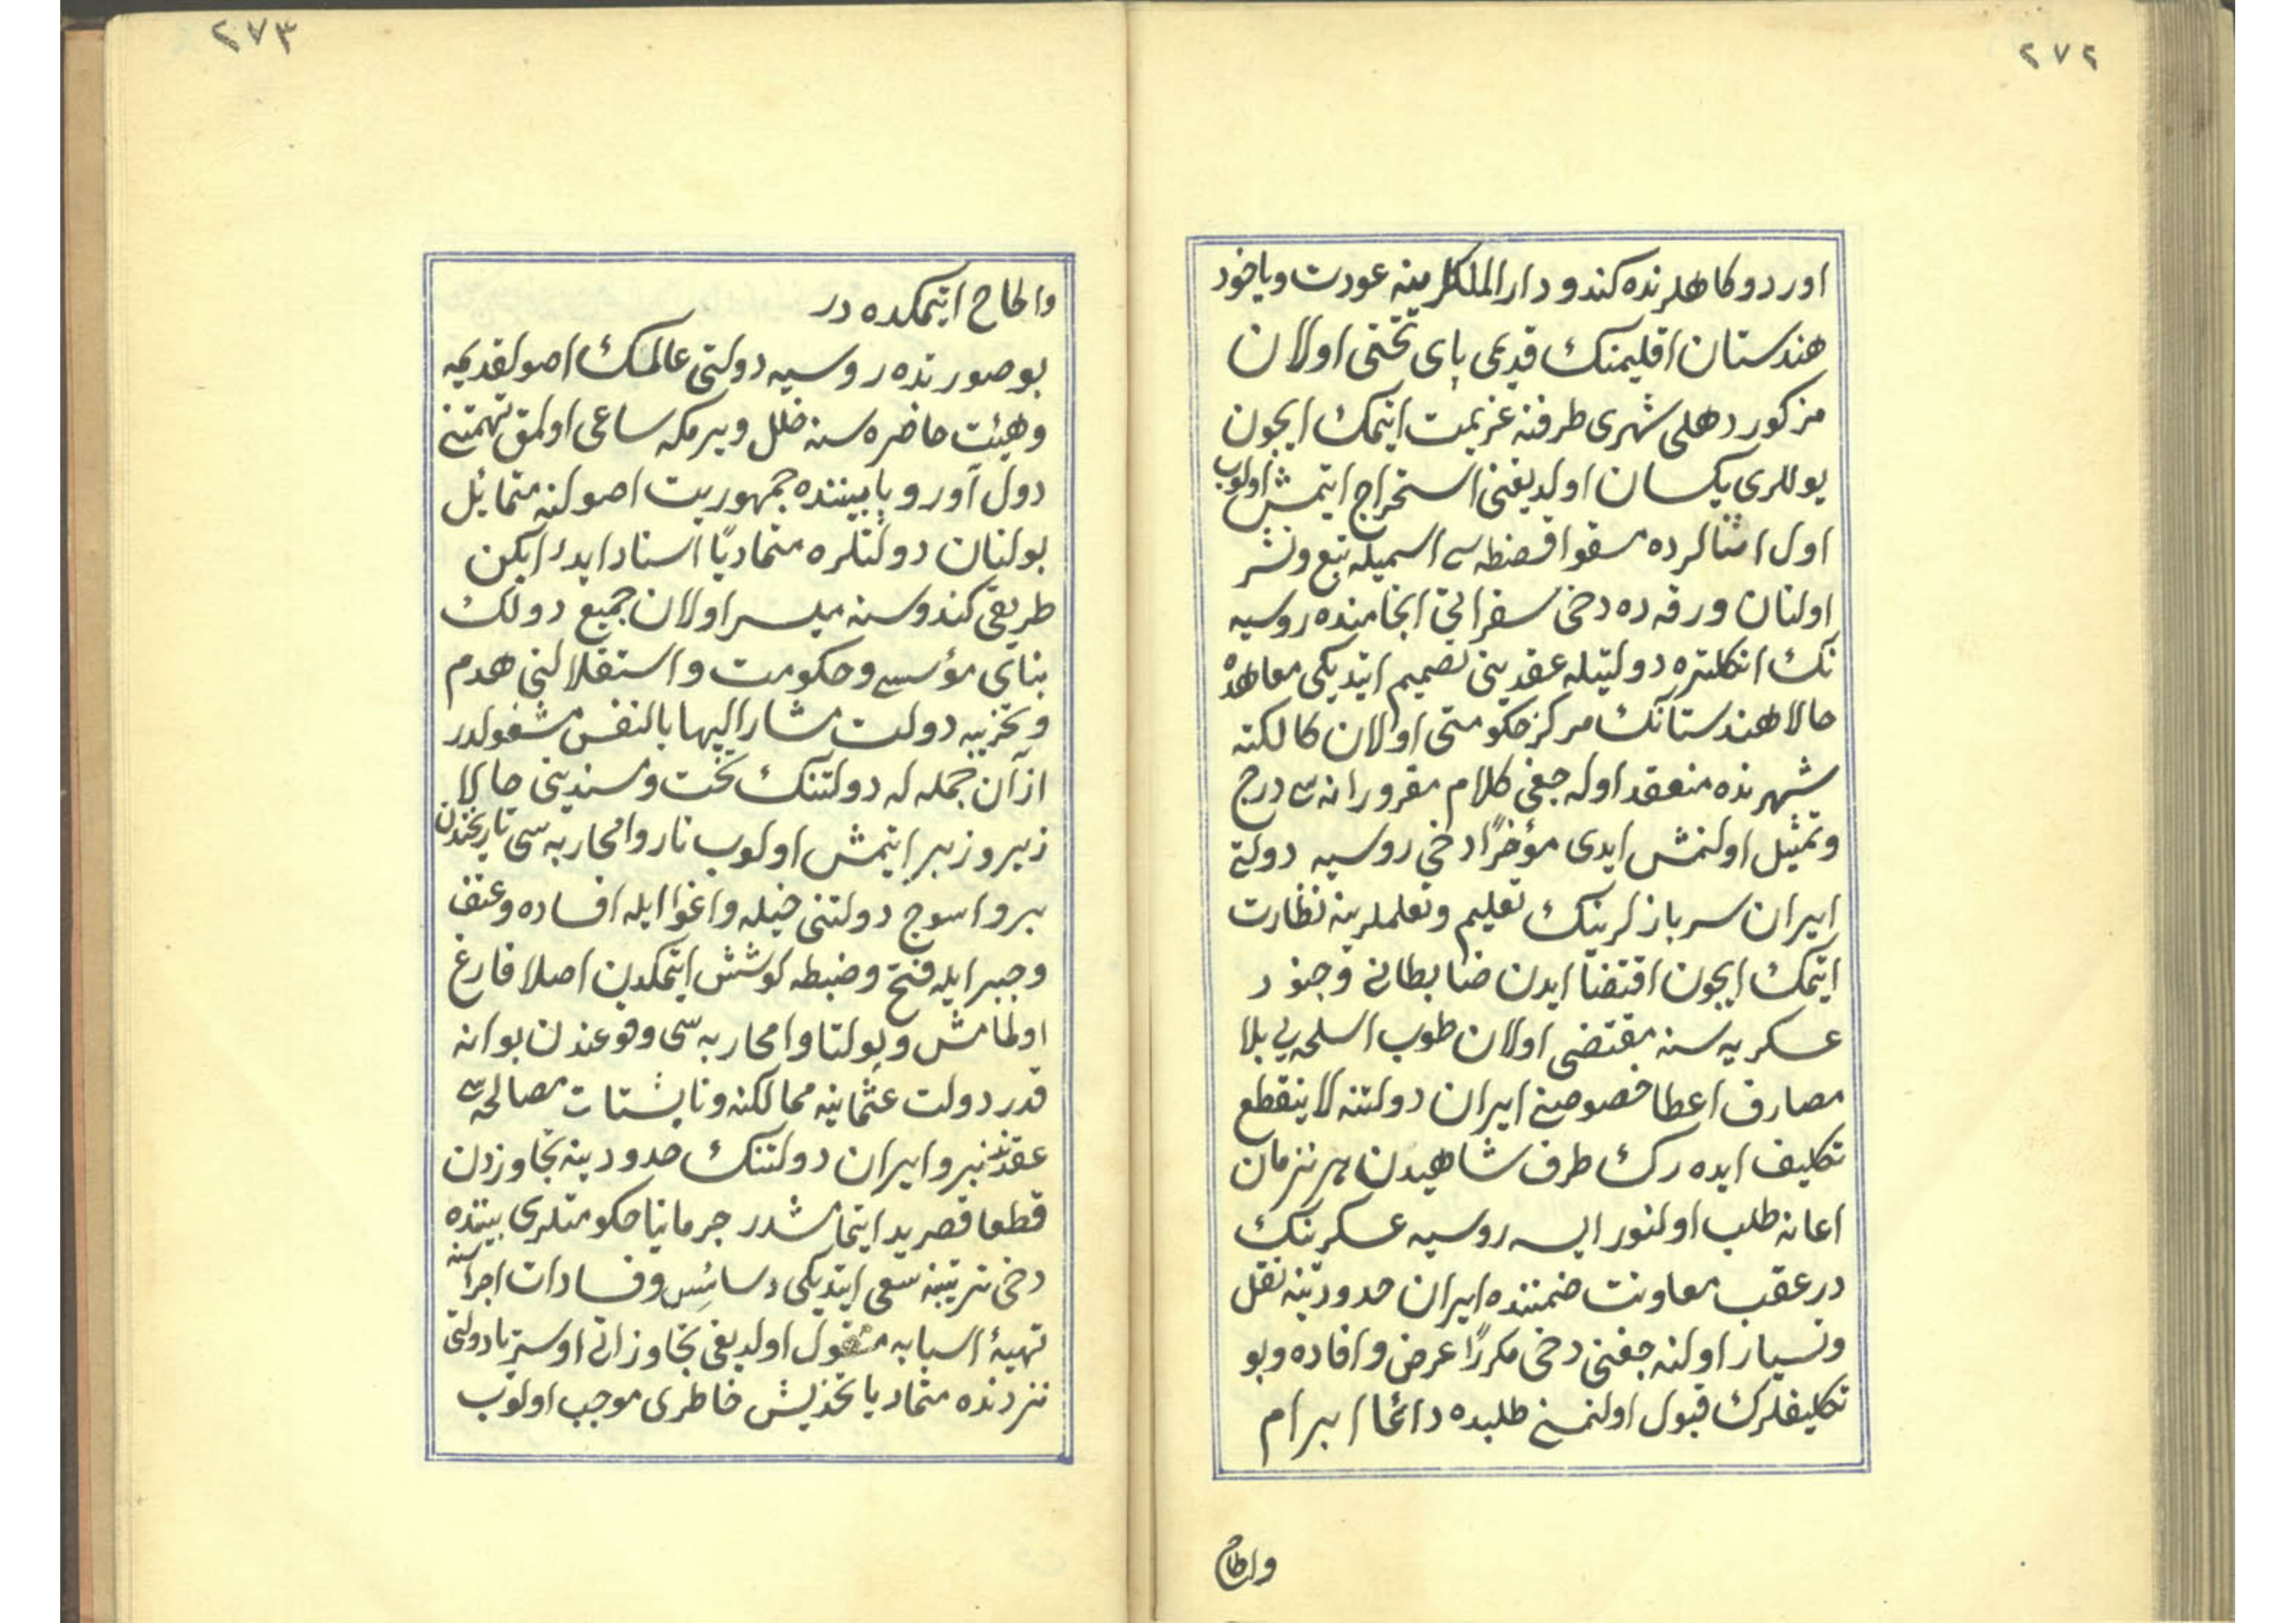 ٢٧٢
اوردوكاهلرنده كندو دار الملكلرينه عودت وياخود
هندستان اقليمنك قديمى پاى تختى اولان
مزكور دهلى شهرى طرفنه عزيمت ايتمك ايچون
يوللرى يكسان اولديغنى استخراج ايتمش اولوب
اول اثنالرده مسقوا قصنطه سى اسميله تبع ونشر
اولنان ورقه ده دخى سفر انجامنده روسيه
نك انكلتره دولتيله عقدينى تصميم ايتديكى معاهده
حالا هندستانك مركز حكومتى اولان كالكته
شهرنده منعقد اوله جغى كلام مغرورانه سى درج
وتمثيل اولنمش ايدى مؤخرًا دخى روسيه دولتى
ايران سربازلرينك تعليم وتعلملرينه نظارت
ايتمك ايچون اقتضا ايدن ضابطانى وجنود
عسكريه سنه مقتضى اولان طوب اسلحه يى بلا
مصارف اعطا خصوصنى ايران دولتنه لاينقطع
تكليف ايده رك طرف شاهيدن هر نزمان
اعانه طلب اولنور ايسه روسيه عسكرينك
درعقب معاونت ضمننده ايران حدودينه نقل
وتسيار اولنه جغنى دخى مكررًا عرض وافاده وبو
تكليفلرك قبول اولنمسنى طلبده دائما ابرام
والحاح
٢٧٣
والحاح ايتمكده در
بو صورتده روسيه دولتى عالمك اصول قديمه
وهيئت حاضره سنه خلل ويرمكه ساعى اولمق تهمتنى
دول آوروپا بيننده جمهوريت اصولنه متمائل
بولنان دولتلره متماديًا اسناد ايدر ايكن
طريقى كندوسنه ميسر اولان جميع دولك
بناى مؤسسى وحكومت واستقلالنى هدم
وتخريبه دولت مشار اليها بالنفس مشغولدر
از آن جمله له دولتنك تخت ومسندينى حالا
زير وزبر ايتمش اولوب ناروا محاربه سى تاريخندن
برو اسوج دولتنى حيله واغوا ايله افساده وعنف
وجبر ايله فتح وضبطه كوشش ايتمكدن اصلا فارغ
اولمامش وپولتاوا محاربه سى وقوعندن بو انه
قدر دولت عثمانيه ممالكنه و نايشتات مصالحه سى
عقدندنبرو ايران دولتنك حدودينه تجاوزدن
قطعا قصر يد ايتمامشدر جرمانيا حكومتلرى بيننده
دخى ترتيبنه سعى ايتديكى دسائس وفسادات اجراسنه
تهيۀ اسبابه مشغول اولديغى تجاوزاتى اوستريا دولتى
نزدنده متماديا تخديش خاطرى موجب اولوب